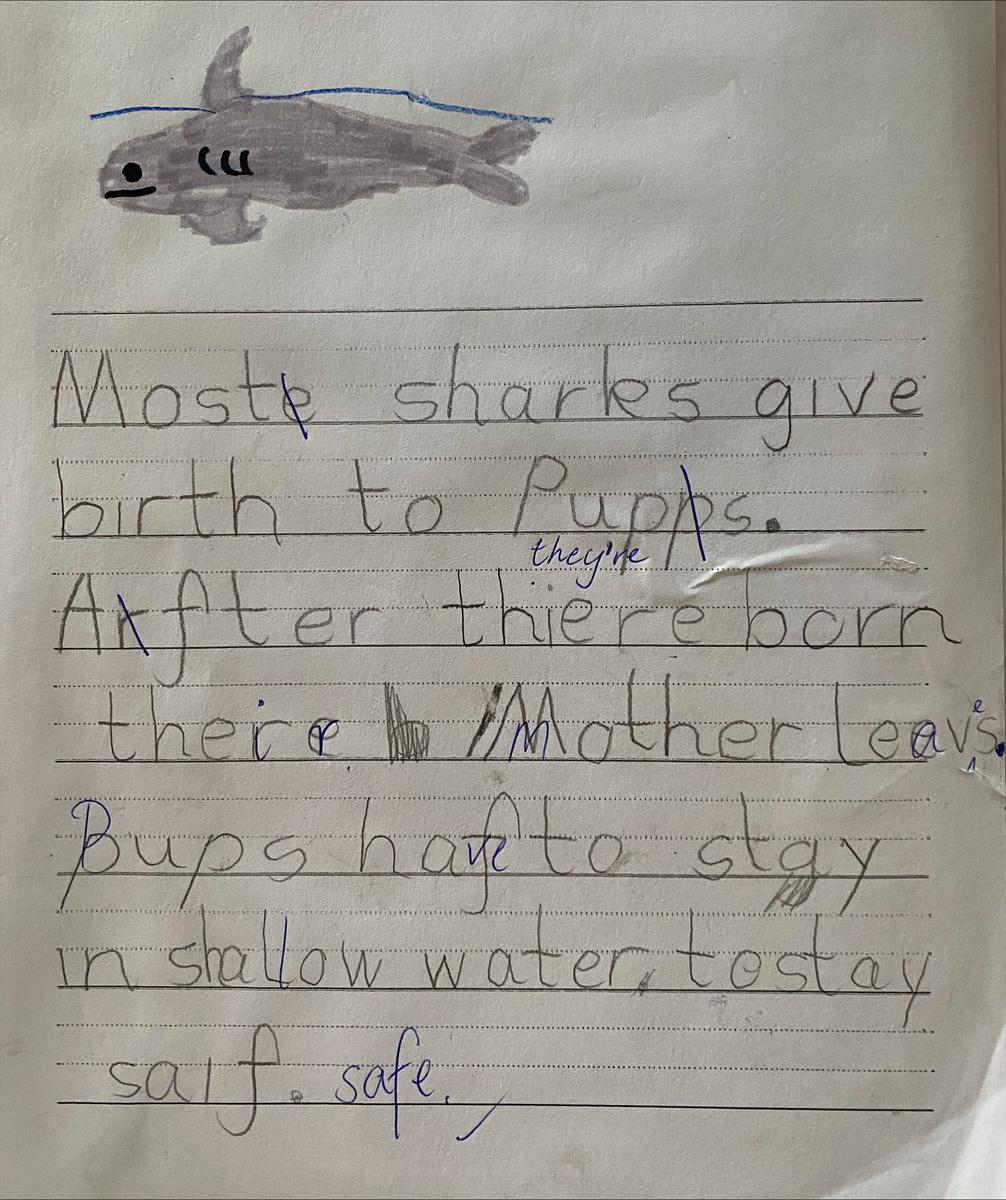 Moste sharks give
birth to Pupps.
they're
Arfter thiere born
their Mother leaves.
Pups have to stay
in shallow water, to stay
saif. safe.